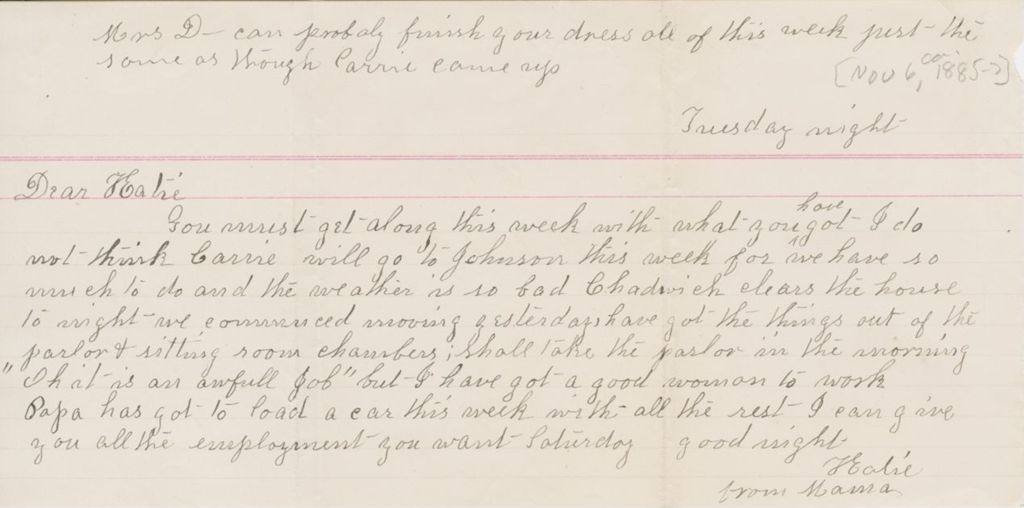 Mrs D— can probaly finish your dress all of this week just the
same as though Carrie came up
[Nov 6, ca. 1885-?]
Tuesday night
Dear Katie
You must get along this week with what you have got I do
not think Carrie will go to Johnson this week for we have so
much to do and the weather is so bad Chadwick clears the house
to night we commnced moving yesterday have got the things out of the
parlor & sitting room chambers, shall take the parlor in the morning
"Oh it is an awfull Job" but I have got a good woman to work
Papa has got to load a car this week with all the rest I can give
you all the employment you want Saturday good night
Katie
from Mama